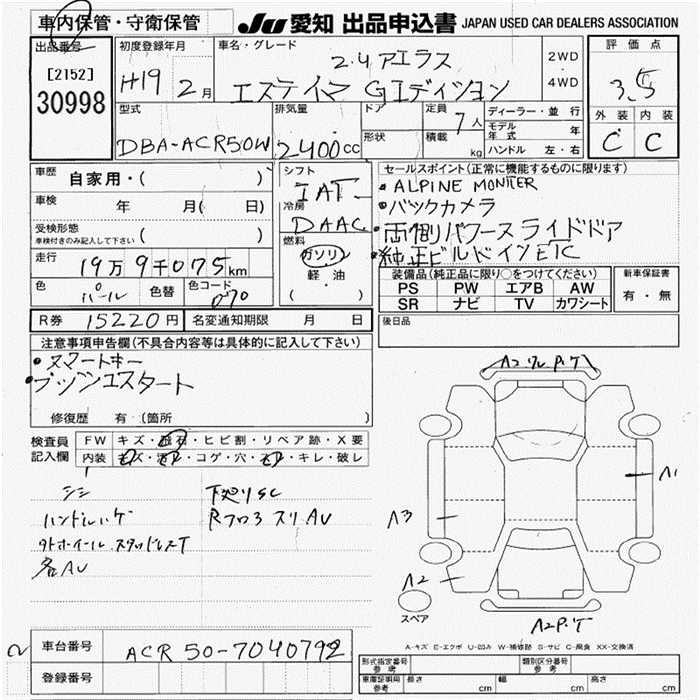 車内保管・守衛保管
JU 愛知 出品申込書 JAPAN USED CAR DEALERS ASSOCIATION
出品番号
[2152]
30998
初度登録年月
H19 2月
車名・グレード
2.4 アエラス
エスティマ Gエディション
2WD
4WD
評価点
3.5
外装 内装
C C
型式
DBA-ACR50W
排気量
2400cc
ドア
形状
定員
7人
積載
kg
ディーラー・並 行
モデル年式 年
ハンドル 左・右
車歴
自家用・( )
車検
年 月( 日)
受検形態
車検付きのみ記入して下さい ( )
走行
19万9千075km
色
パール
色替
色コード
070
シフト
IAT
冷房
DAAC
燃料
ガソリン
軽油
( ・ )
セールスポイント(正常に機能するものに限ります)
・ALPINE MONITER
・バックカメラ
・両側パワースライドドア
・純正ビルドインETC
装備品(純正品に限り○をつけてください)
PS PW エアB AW
SR ナビ TV カワシート
新車保証書
有・無
R券 15220円
名変通知期限 月 日
後日品
注意事項申告欄(不具合内容等は具体的に記入して下さい)
・スマートキー
・プッシュスタート
修復歴 有 (箇所 )
検査員
記入欄
FW キズ・飛石・ヒビ割・リペア跡・X要
内装 キズ・コゲ・穴・キレ・破レ
シミ
下廻りSC
ハンドルハゲ
Rフロ3スリAU
外ホイール スタッドレスT
各AU
A2 ワレ P.ケ
A1
A3
A2
A2 P.ケ
スペア
A-キズ E-エクボ U-凹み W-補修跡 S-サビ C-腐食 XX-交換済
車台番号
ACR 50-7040792
登録番号
形式指定番号
参考
類別区分番号
参考
車庫証明用
参考
長さ cm
幅 cm
高さ cm